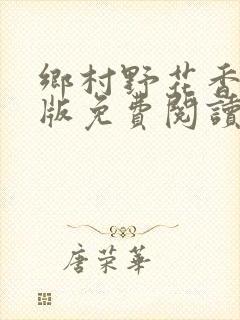 鄉村野花香
版免費閱讀
唐荣華